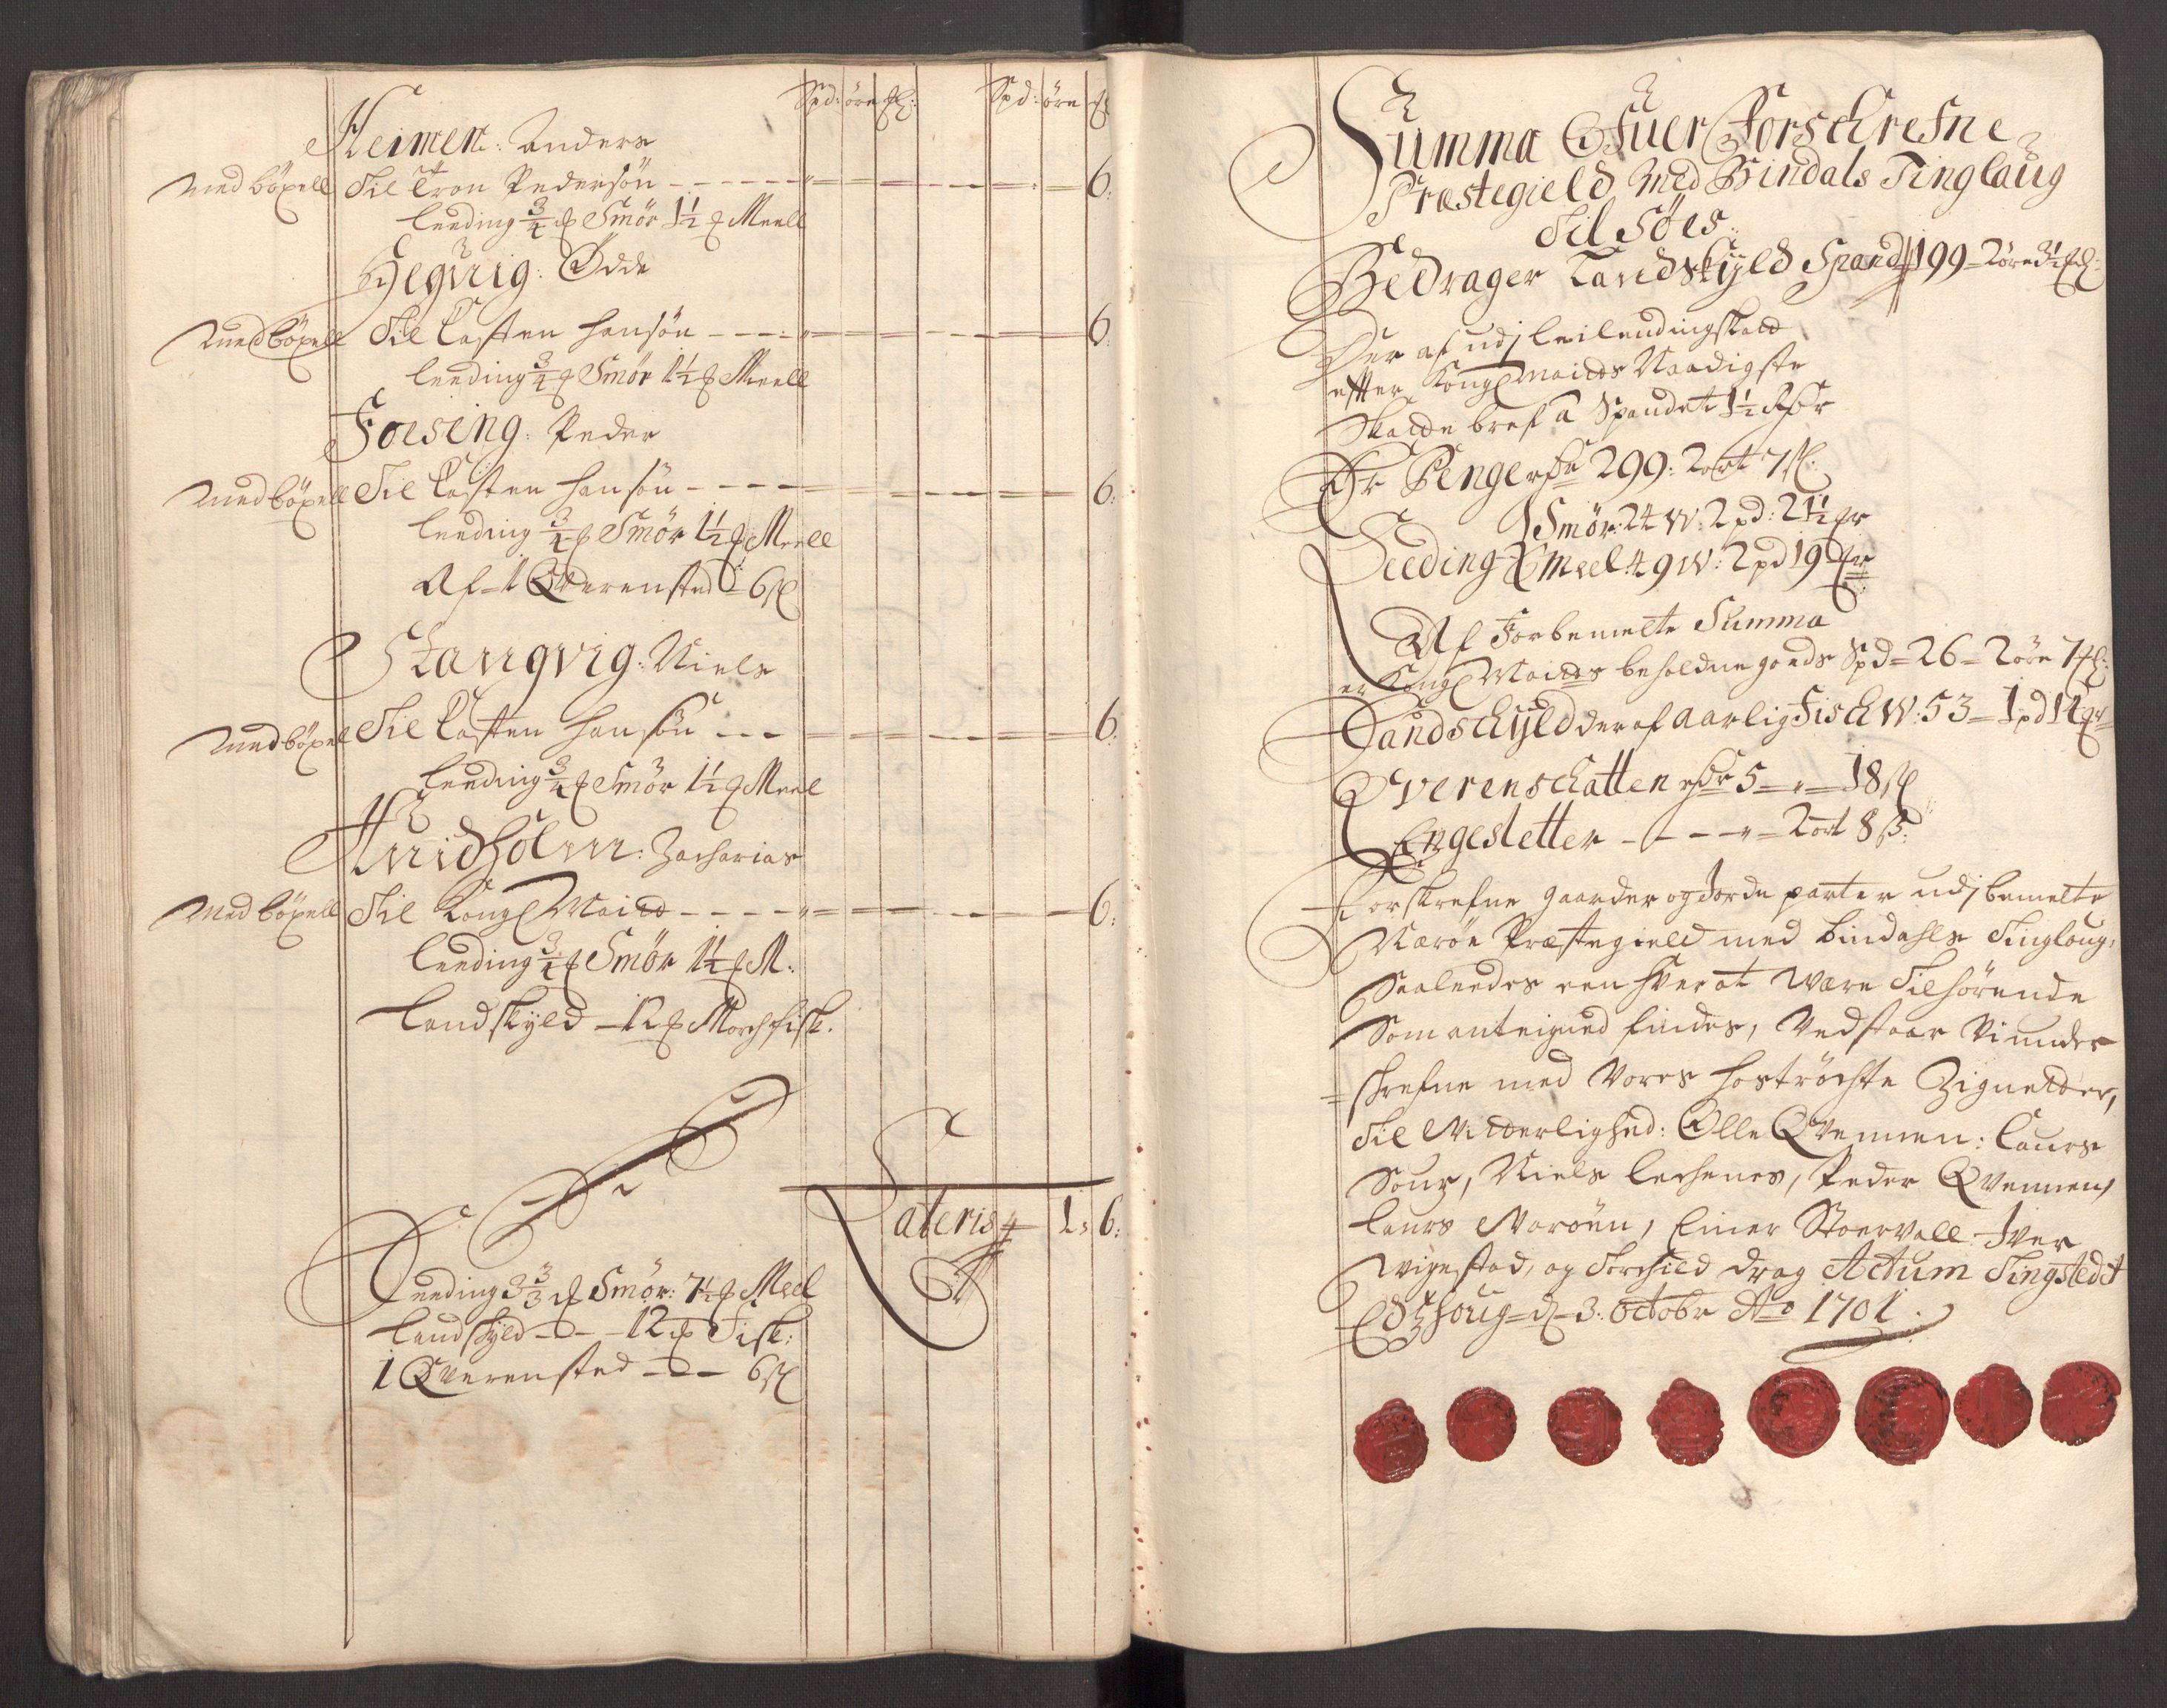 Spd: øre Spd: øre
Heimen: Anders
med böxell Til Tron Pedersön - - - - - 6.
leeding 3/4 Smör 1 1/2 Meell
Hegvig: Odde
med böxell Til Casten Hansön - - - 6.
leeding 3/4 Smör 1 1/2 Meell
Foeseng: Peder
med böxell Til Casten Hansön - - - - 6.
leeding 3/4 Smör 1 1/2 Meell
Af - 1 Qverensted - 6
Stangvig: Niels
med böxel Til Casten Hansön - - - 6.
leeding 3/4 Smör 1 1/2 Meel
Zacharias
med böxell Til Kongl Maitt - - - - 6.
leeding 3/4 Smör 1 1/2 M:
Landskyld - 12 Morch fisk.
Lateris 1: 6:
Leeding 3 3/3 Smör: 7 1/2 Meel
Landskyld - - 12 Fisk:
1 Qverensted - - 6
Summa Ofuer Forschrefne
Præstegield Med Bindals Tinglaug
Til Söes:
Bedrager Landskyld Spand 199 - 2 öre
Der af udj leilendingskatt
effter Kongl Maitts Naadigste
Skatte bref a Spandet 1 1/2
Er Penge 299: 2 ort 7
Smör: 24 W: 2 pd: 2 1/2
Leeding Meel: 49 W: 2 pd 19
Af Forbemelte Summa
er Kongl Maitts beholdne goeds Spd = 26 - 2 öre 7
Landschyld der af Aarlig Fisch W: 53 - 1 pd 12
Qverenschatten 5 - 18
Engesletter - - - 2 ort 8
Forskrefne gaarder og Jorde parter udj bemelte
Næröe Præstegield med Bindahls Tinglaug:
Saaleedes een hver at Were Tilhörende
Som antegned findes, Vedstaar Vi under
= schrefne med Vores hoströchte Zignetter,
Til Vitterlighed: Olle Qvennen: Laurs
Niels Lechenes, Peder Qvennen,
Laurs Naröen, Einer Stoervall Iver
og Torchild Drag Actum Tingstedet
3: Octobr Ao 1701.